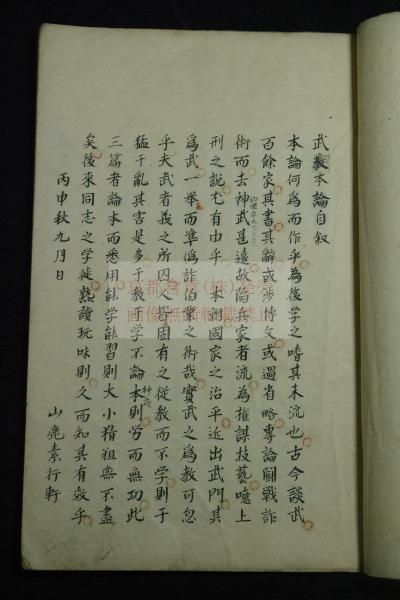 武教本論自叙
本論何為而作乎為後学之嗜其末流也古今談武
百餘家其書其辭或渉博文或過省略專論鬪戰詐
術而去神武甚遠故偏兵家者流為權謀技藝噫上
刑之說尤有由乎 本朝國家之治平近出武門其
為武一挙而準偽詐伯業之術哉實武之為教可忽
乎夫武者義之所因人皆固有之從教而不学則于
猛于亂其害是多于教于学不論本則労而無功此
三篇者論本而悉用能学能習則大小精粗無不盡
矣後来同志之学徒熟讀玩味則久而知其有效乎
丙申秋九月日
山鹿素行軒
京都倉庫(株)愛宕
画像無断転載禁止